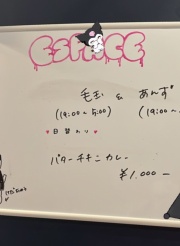 ESPACE
毛玉 & あんず
(19:00~5:00) (19:00~
♥日替わり♥
バターチキンカレー
¥1.000-